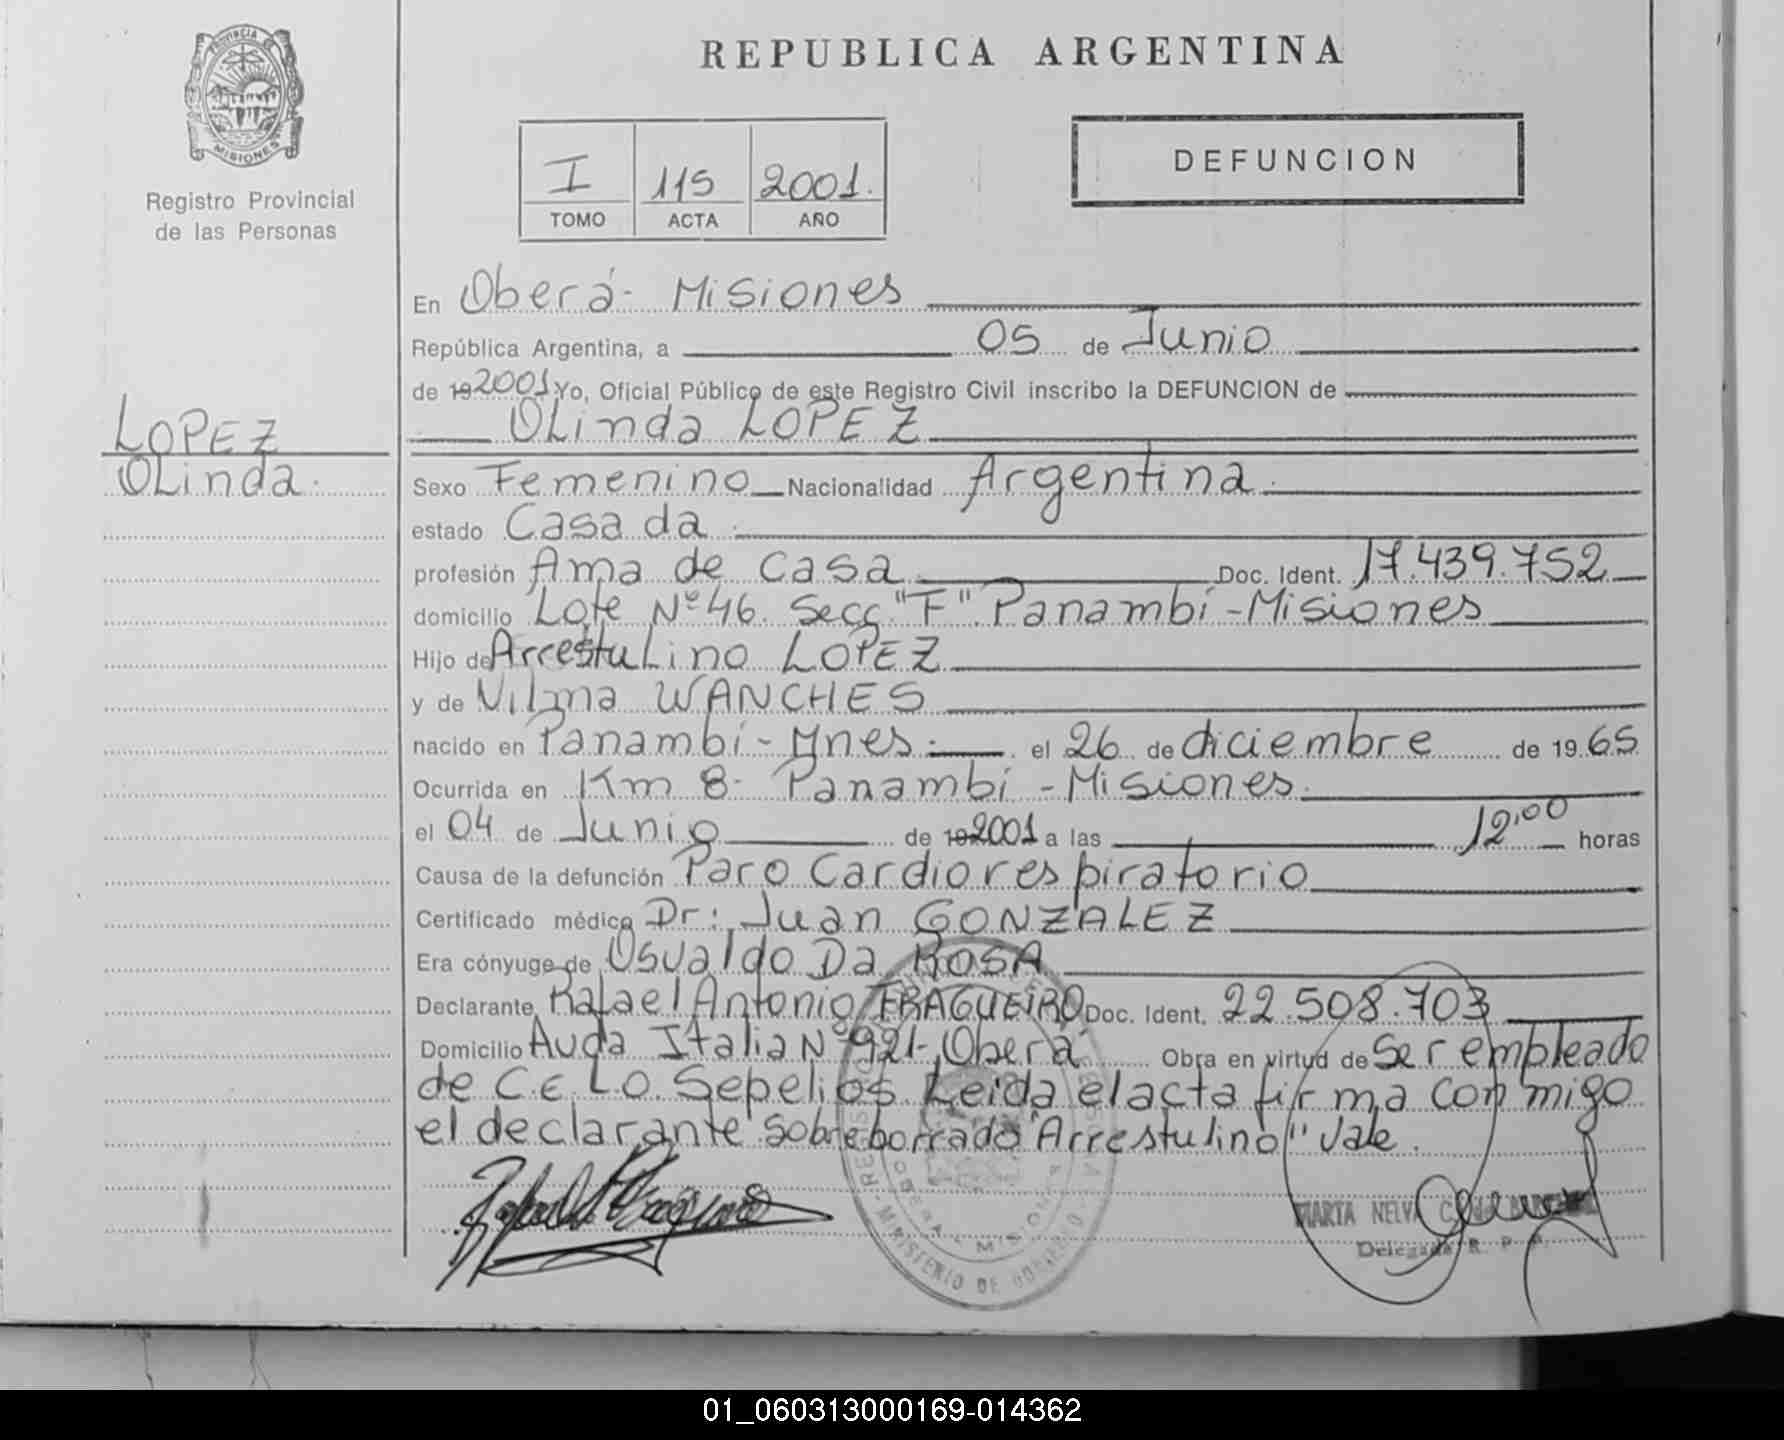 PROVINCIA DE
MISIONES
Registro Provincial
de las Personas
REPUBLICA ARGENTINA
I 115 2001.
TOMO ACTA AÑO
DEFUNCION
En Oberá - Misiones
República Argentina, a 05 de Junio
de 19 2001 Yo, Oficial Público de este Registro Civil inscribo la DEFUNCION de
OLinda LOPEZ
LOPEZ
OLinda.
Sexo Femenino Nacionalidad Argentina.
estado Casada.
profesión Ama de casa Doc. Ident. 17.439.752
domicilio Lote Nº 46. Secc "F". Panambí - Misiones
Hijo de ArrestuLino LOPEZ
y de Vilma WANCHES
nacido en Panambí - Mnes. el 26 de diciembre de 19 65
Ocurrida en Km 8 - Panambí - Misiones.
el 04 de Junio de 19 2001 a las 12,00 horas
Causa de la defunción Paro Cardiorespiratorio
Certificado médico Dr: Juan GONZALEZ
Era cónyuge de Osvaldo Da ROSA
Declarante Rafael Antonio FRAGUEIRO Doc. Ident. 22.508.703
Domicilio Avda Italia Nº 921-, Oberá Obra en virtud de Ser empleado
de C.E.L.O. Sepelios. Leida el acta firma con migo
el declarante "Sobreborrado "Arrestulino" Vale.
MARTA NELVA
Delegada R. P. P.
MINISTERIO DE GOBIERNO
OBERA - MISIONES
01_060313000169-014362